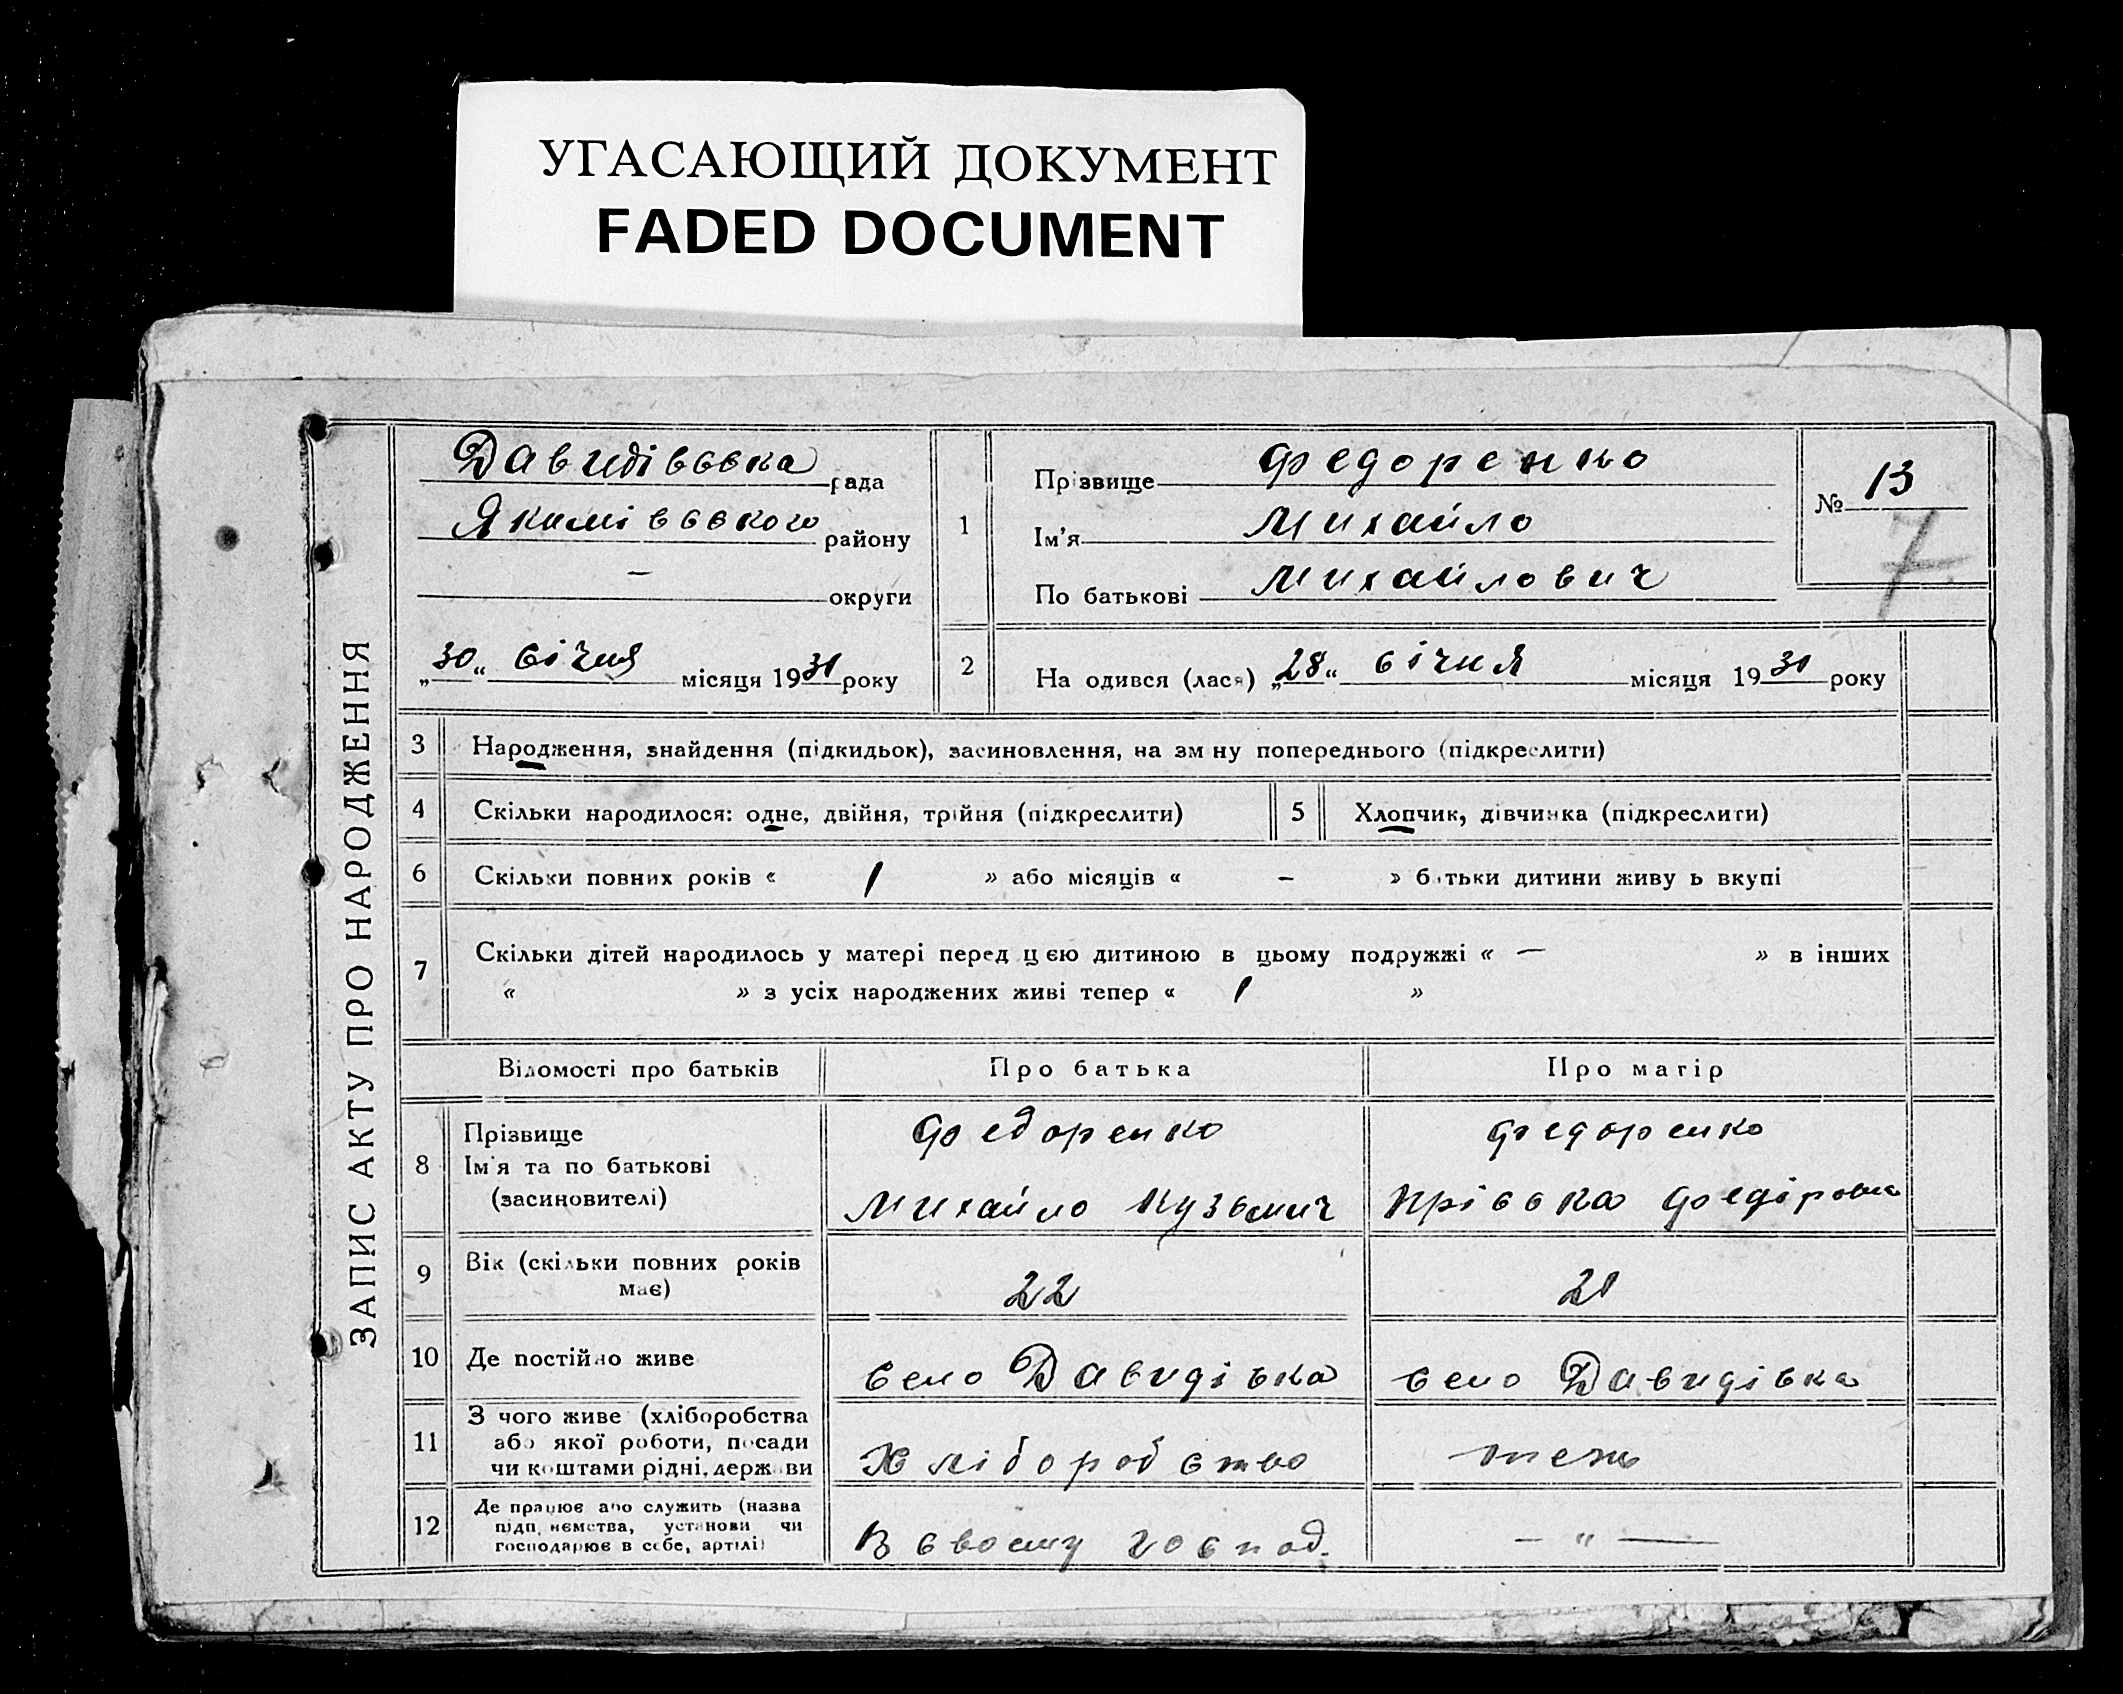 УГАСАЮЩИЙ ДОКУМЕНТ
FADED DOCUMENT
ЗАПИС АКТУ ПРО НАРОДЖЕННЯ
Давидівська рада
Якимівського району
— округи
„30“ січня місяця 1931 року
1
Прізвище Федоренко
Ім'я Михайло
По батькові Михайлович
№ 13
7
2
На одився (лася) „28“ січня місяця 1931 року
3 Народження, знайдення (підкидьок), засиновлення, на зм ну попереднього (підкреслити)
4 Скільки народилося: одне, двійня, трійня (підкреслити)
5 Хлопчик, дівчинка (підкреслити)
6 Скільки повних років « 1 » або місяців « – » батьки дитини живу ь вкупі
7 Скільки дітей народилось у матері перед цєю дитиною в цьому подружжі « — » в інших
« » з усіх народжених живі тепер « 1 »
Відомості про батьків Про батька Про матір
8 Прізвище
Ім'я та по батькові
(засиновителі)
Федоренко
Михайло Кузьмич
Федоренко
Пріська Федіровна
9 Вік (скільки повних років
має)
22
21
10 Де постійно живе
село Давидівка
село Давидівка
11 З чого живе (хліборобства
або якої роботи, посади
чи коштами рідні, держави
Хліборобство
теж
12 Де працює або служить (назва
підп. немства, установи чи
господарює в себе, артілі)
В своему господ.
— „ —